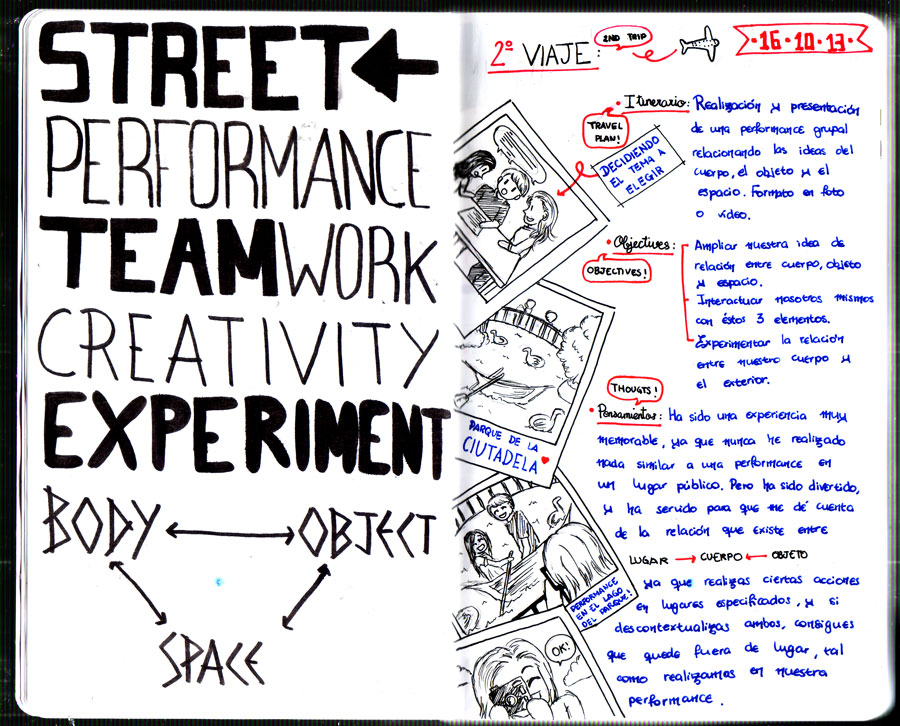 STREET
PERFORMANCE
TEAMWORK
CREATIVITY
EXPERIMENT
BODY
OBJECT
SPACE
2º VIAJE:
2ND TRIP
·16·10·13·
• Itinerario:
TRAVEL
PLAN!
Realización y presentación
de una performance grupal
relacionando las ideas del
cuerpo, el objeto y el
espacio. Formato en foto
o vídeo.
DECIDIENDO
EL TEMA A
ELEGIR
• Objectives:
OBJECTIVES!
Ampliar nuestra idea de
relación entre cuerpo, objeto
y espacio.
Interactuar nosotros mismos
con éstos 3 elementos.
Experimentar la relación
entre nuestro cuerpo y
el exterior.
PARQUE DE LA
CIUTADELA
THOUGTS!
• Pensamientos: Ha sido una experiencia muy
memorable, ya que nunca he realizado
nada similar a una performance en
un lugar público. Pero ha sido divertido,
y ha servido para que me dé cuenta
de la relación que existe entre
LUGAR → CUERPO ← OBJETO
ya que realizas ciertas acciones
en lugares especificados, y si
descontextualizas ambos, consigues
que quede fuera de lugar, tal
como realizamos en nuestra
performance.
PERFORMANCE
EN EL LAGO
DEL PARQUE!
OK!